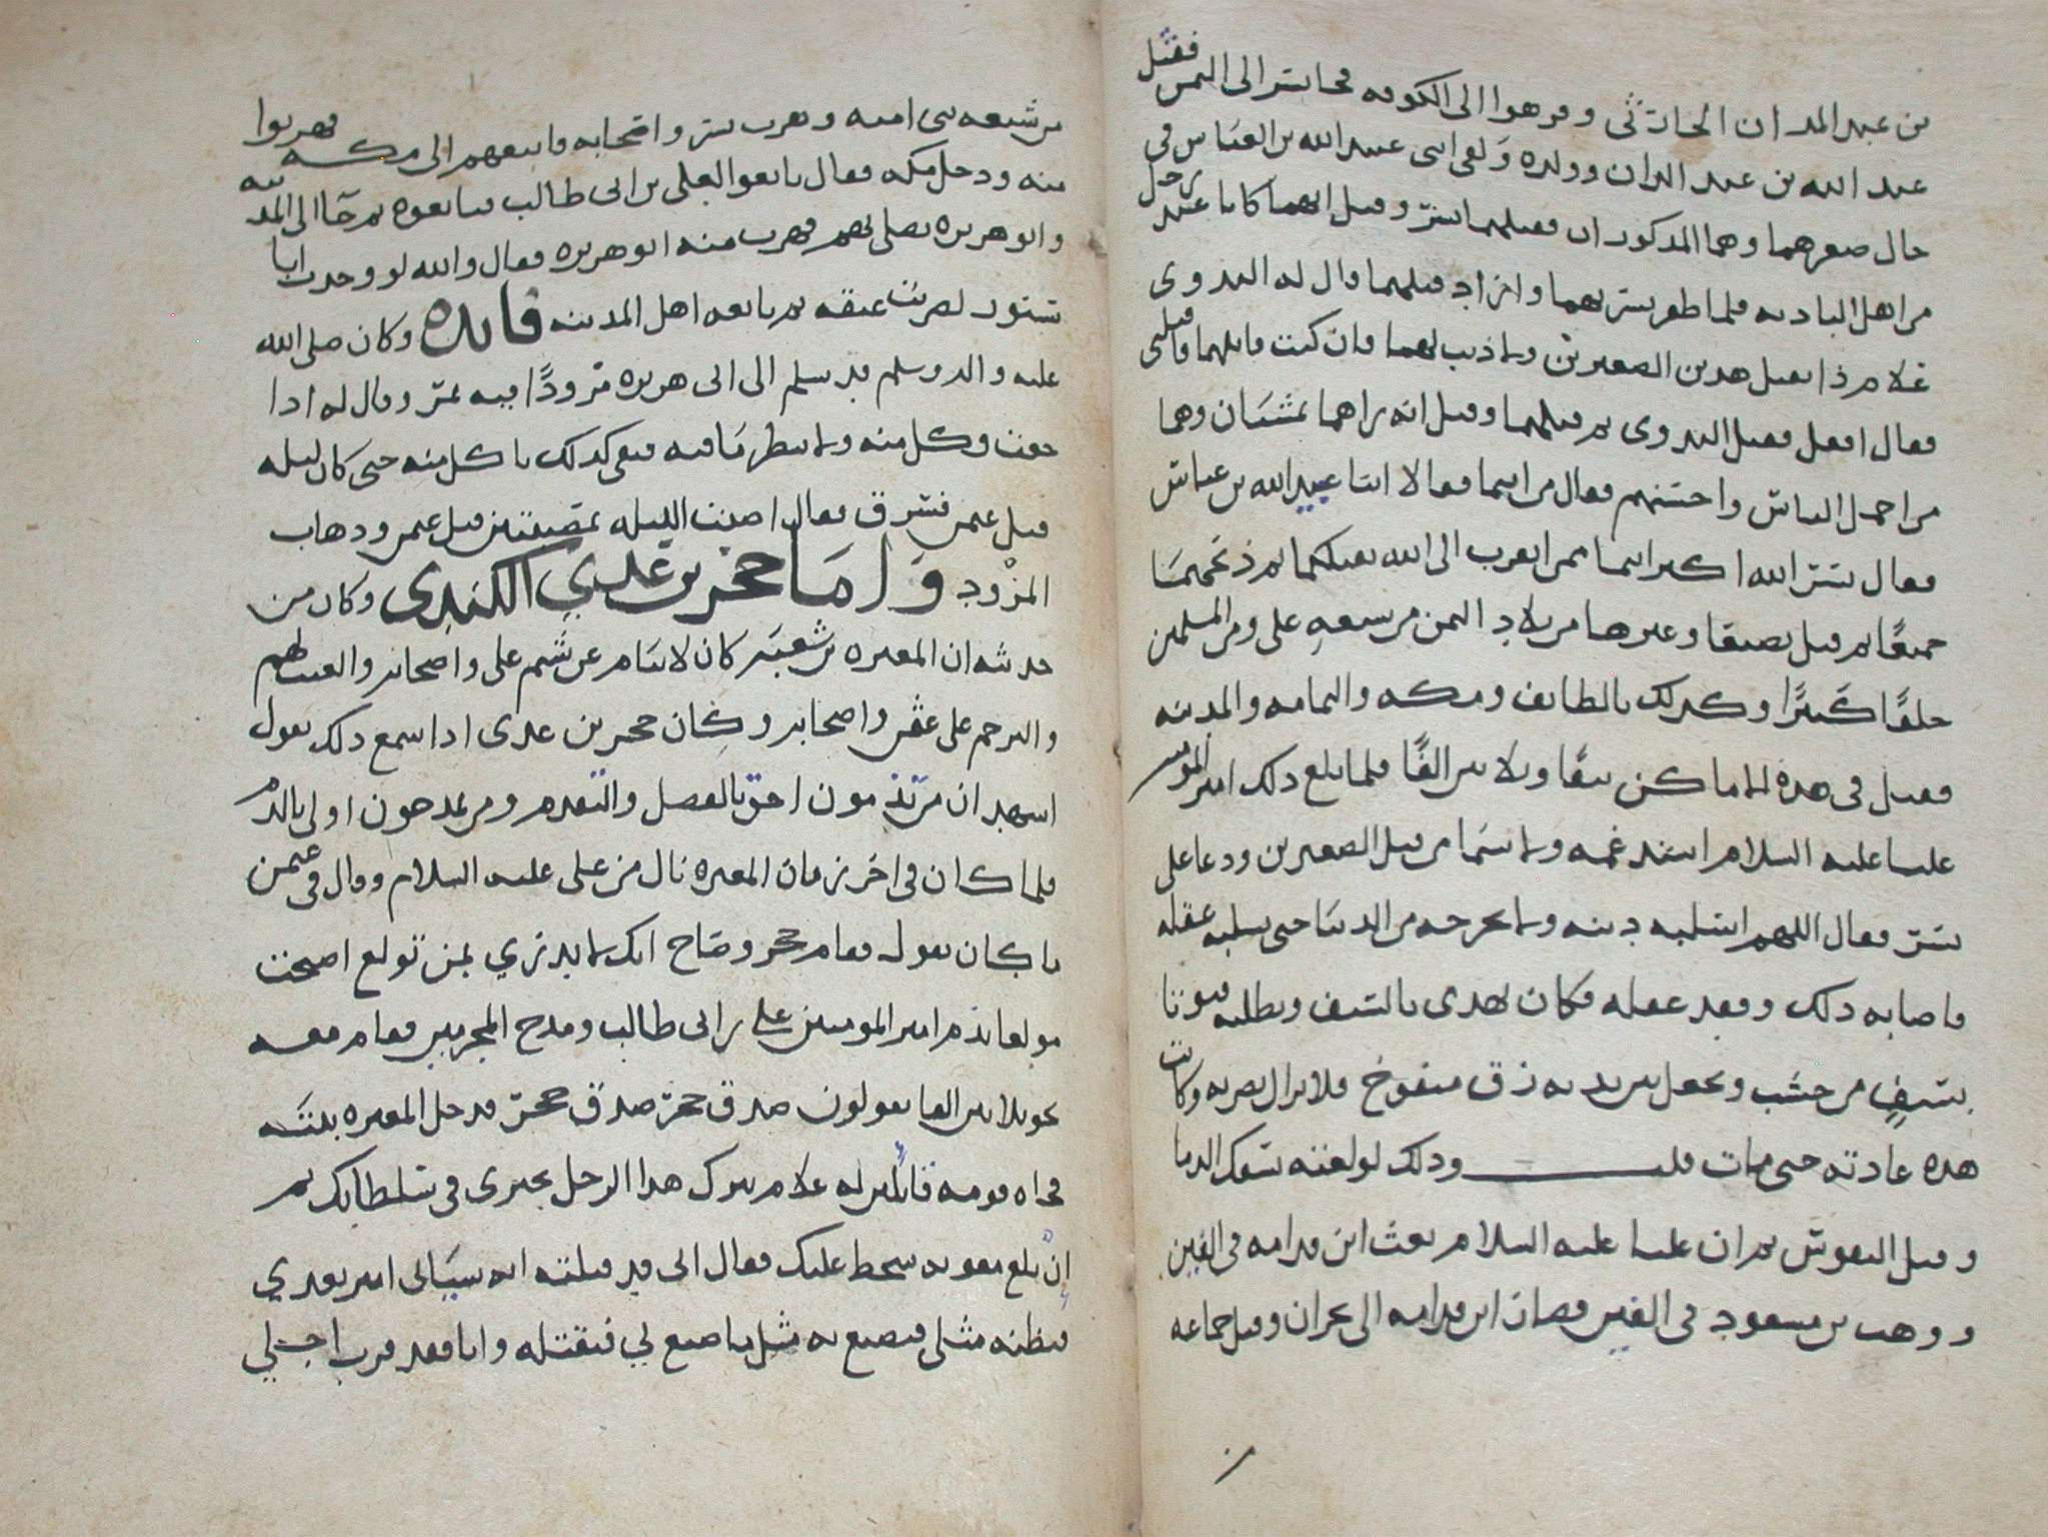 بن عبد المدان الحارثي وفر هوا الى الكوفه فجا بسر الى اليمن فقتل
عبد الله بن عبد المدان وولده ولقي ابني عبيد الله بن العباس في
حال صغرهما وهما المذكوران فقتلهما بسر وقيل انهما كانا عند رجل
من اهل الباديه فلما ظفر بسر بهما واراد قتلهما قال له البدوي
علام ذا تقتل هذين الصغيرين ولا ذنب لهما فان كنت قاتلهما فاقتلني
فقال افعل فقتل البدوي ثم قتلهما وقيل انه راهما يمشيان وهما
من اجمل الناس واحسنهم فقال من انتما فقالا ابنا عبيد الله بن عباس
فقال بسر الله اكبر انتما ممن اتقرب الى الله بقتلكما ثم ذبحهما
جميعًا ثم قتل بصنعا وغيرها من بلاد اليمن من شيعه علي ومن المسلمين
خلقًا كثيرًا وكذلك بالطايف ومكه واليمامه والمدينه
فقتل في هذه الاماكن نيفًا وثلاثين الفًا فلما بلغ ذلك امير المومنين
عليا عليه السلام اشتد غمه ولا سيما من قتل الصغيرين ودعا على
بسر فقال اللهم اسلبه دينه ولا تخرجه من الدنيا حتى تسلبه عقله
فاصابه ذلك وفقد عقله فكان يهذي بالسيف ويطلبه فيوتا
بسيفٍ من خشب ويجعل بين يديه زق منفوخ فلا يزال يضربه وكانت
هذه عادته حتى مات قلت وذلك لولعته بسفك الدما
وقتل النفوس ثم ان عليا عليه السلام بعث ابن قدامه في الفين
ووهب بن مسعود في الفين فصار ابن قدامه الى نجران وقتل جماعه
من شيعه بني اميه وهرب بسر واصحابه فاتبعهم الى مكه فهربوا
منه ودخل مكه فقال بايعوا لعلي بن ابي طالب فبايعوه ثم جا الى المدينه
وابو هريره يصلي بهم فهرب منه ابو هريره فقال والله لو وجدت ابا
سنور لضربت عنقه ثم بايعه اهل المدينه فايده وكان صلى الله
عليه واله وسلم قد سلم الى ابي هريره مزودًا فيه تمر وقال له اذا
جعت وكل منه ولا تنظر ما فيه فبقي كذلك ياكل منه حتى كان ليله
قتل عثمن فسرق فقال اصبت الليله بمصيبتين قتل عثمن وذهاب
المزود واما حجر بن عدي الكندي وكان من
حديثه ان المغيره بن شعبه كان لا ينام عن شتم علي واصحابه والعيب لهم
والترحم على عثمن واصحابه وكان حجر بن عدي اذا سمع ذلك يقول
اشهد ان من تذمون احق بالفضل والتقدم ومن تمدحون اولى بالذم
فلما كان في اخر زمان المغيره نال من علي عليه السلام وقال في عثمن
ما كان يقول فقام حجر وصاح انك لا تدري بمن تولع اصبحت
مولعا بذم امير المومنين علي بن ابي طالب ومدح المجرمين فقام معه
نحو ثلاثين الفا يقولون صدق حجر صدق حجر فدخل المغيره بيته
فجاه قومه قائلين له علام تترك هذا الرجل يجتري في سلطانك ثم
ان بلغ معويه سخط عليك فقال اني قد قتلته انه سياتي امير بعدي
فيظنه مثلي فيصنع به مثل ما صنع لي فيقتله وانا فقد قرب اجلي